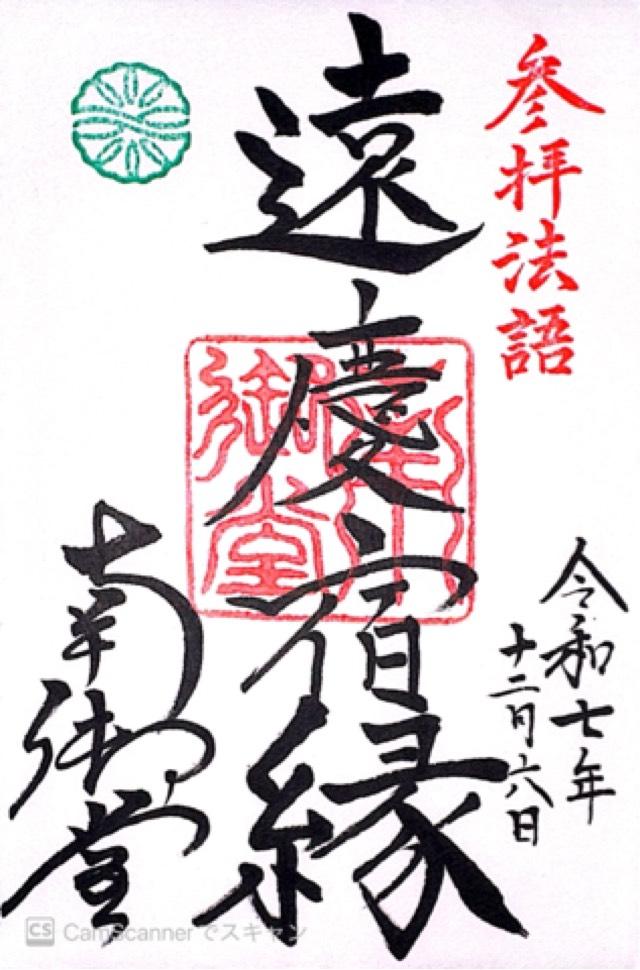 参拝法語
令和七年
十二月六日
遠慶宿縁
南御堂
CS CamScanner でスキャン